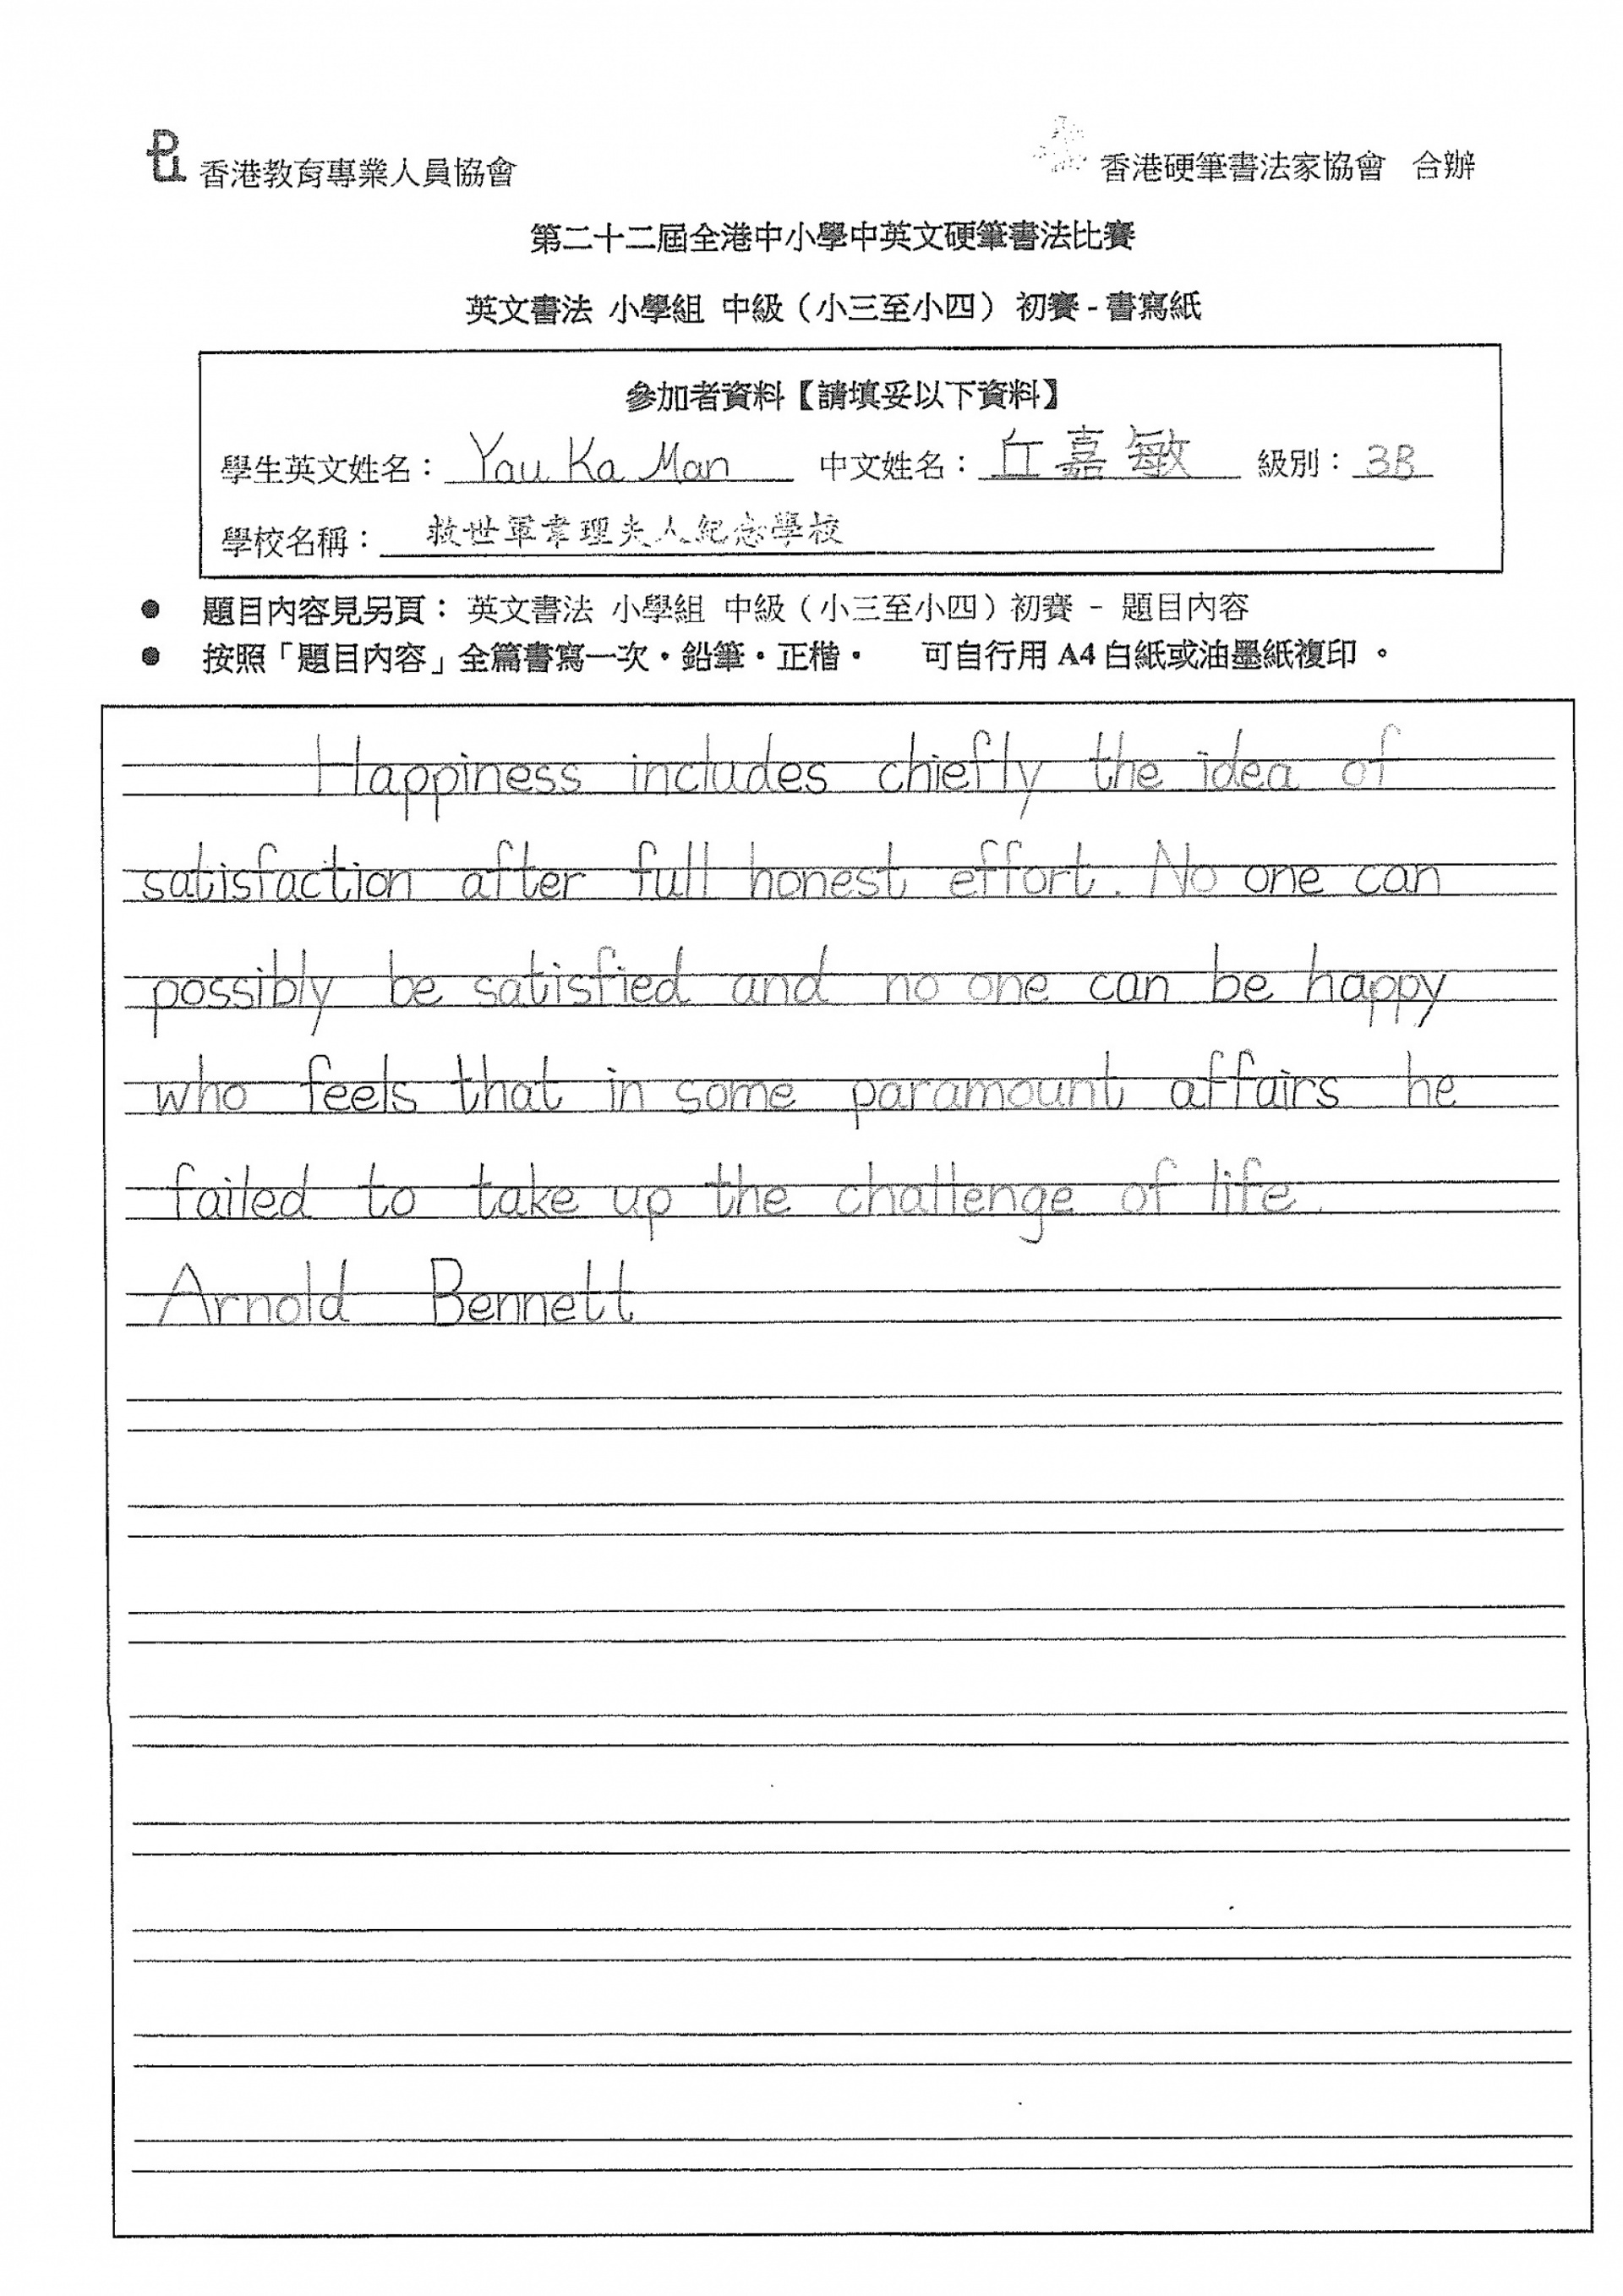 香港教育專業人員協會
香港硬筆書法家協會 合辦
第二十二屆全港中小學中英文硬筆書法比賽
英文書法 小學組 中級（小三至小四）初賽 - 書寫紙
參加者資料【請填妥以下資料】
學生英文姓名： Yau Ka Man 中文姓名： 丘嘉敏 級別： 3B
學校名稱： 救世軍韋理夫人紀念學校
● 題目內容見另頁： 英文書法 小學組 中級（小三至小四）初賽 - 題目內容
● 按照「題目內容」全篇書寫一次・鉛筆・正楷・ 可自行用 A4 白紙或油墨紙複印 。
Happiness includes chiefly the idea of
satisfaction after full honest effort. No one can
possibly be satisfied and no one can be happy
who feels that in some paramount affairs he
failed to take up the challenge of life.
Arnold Bennett